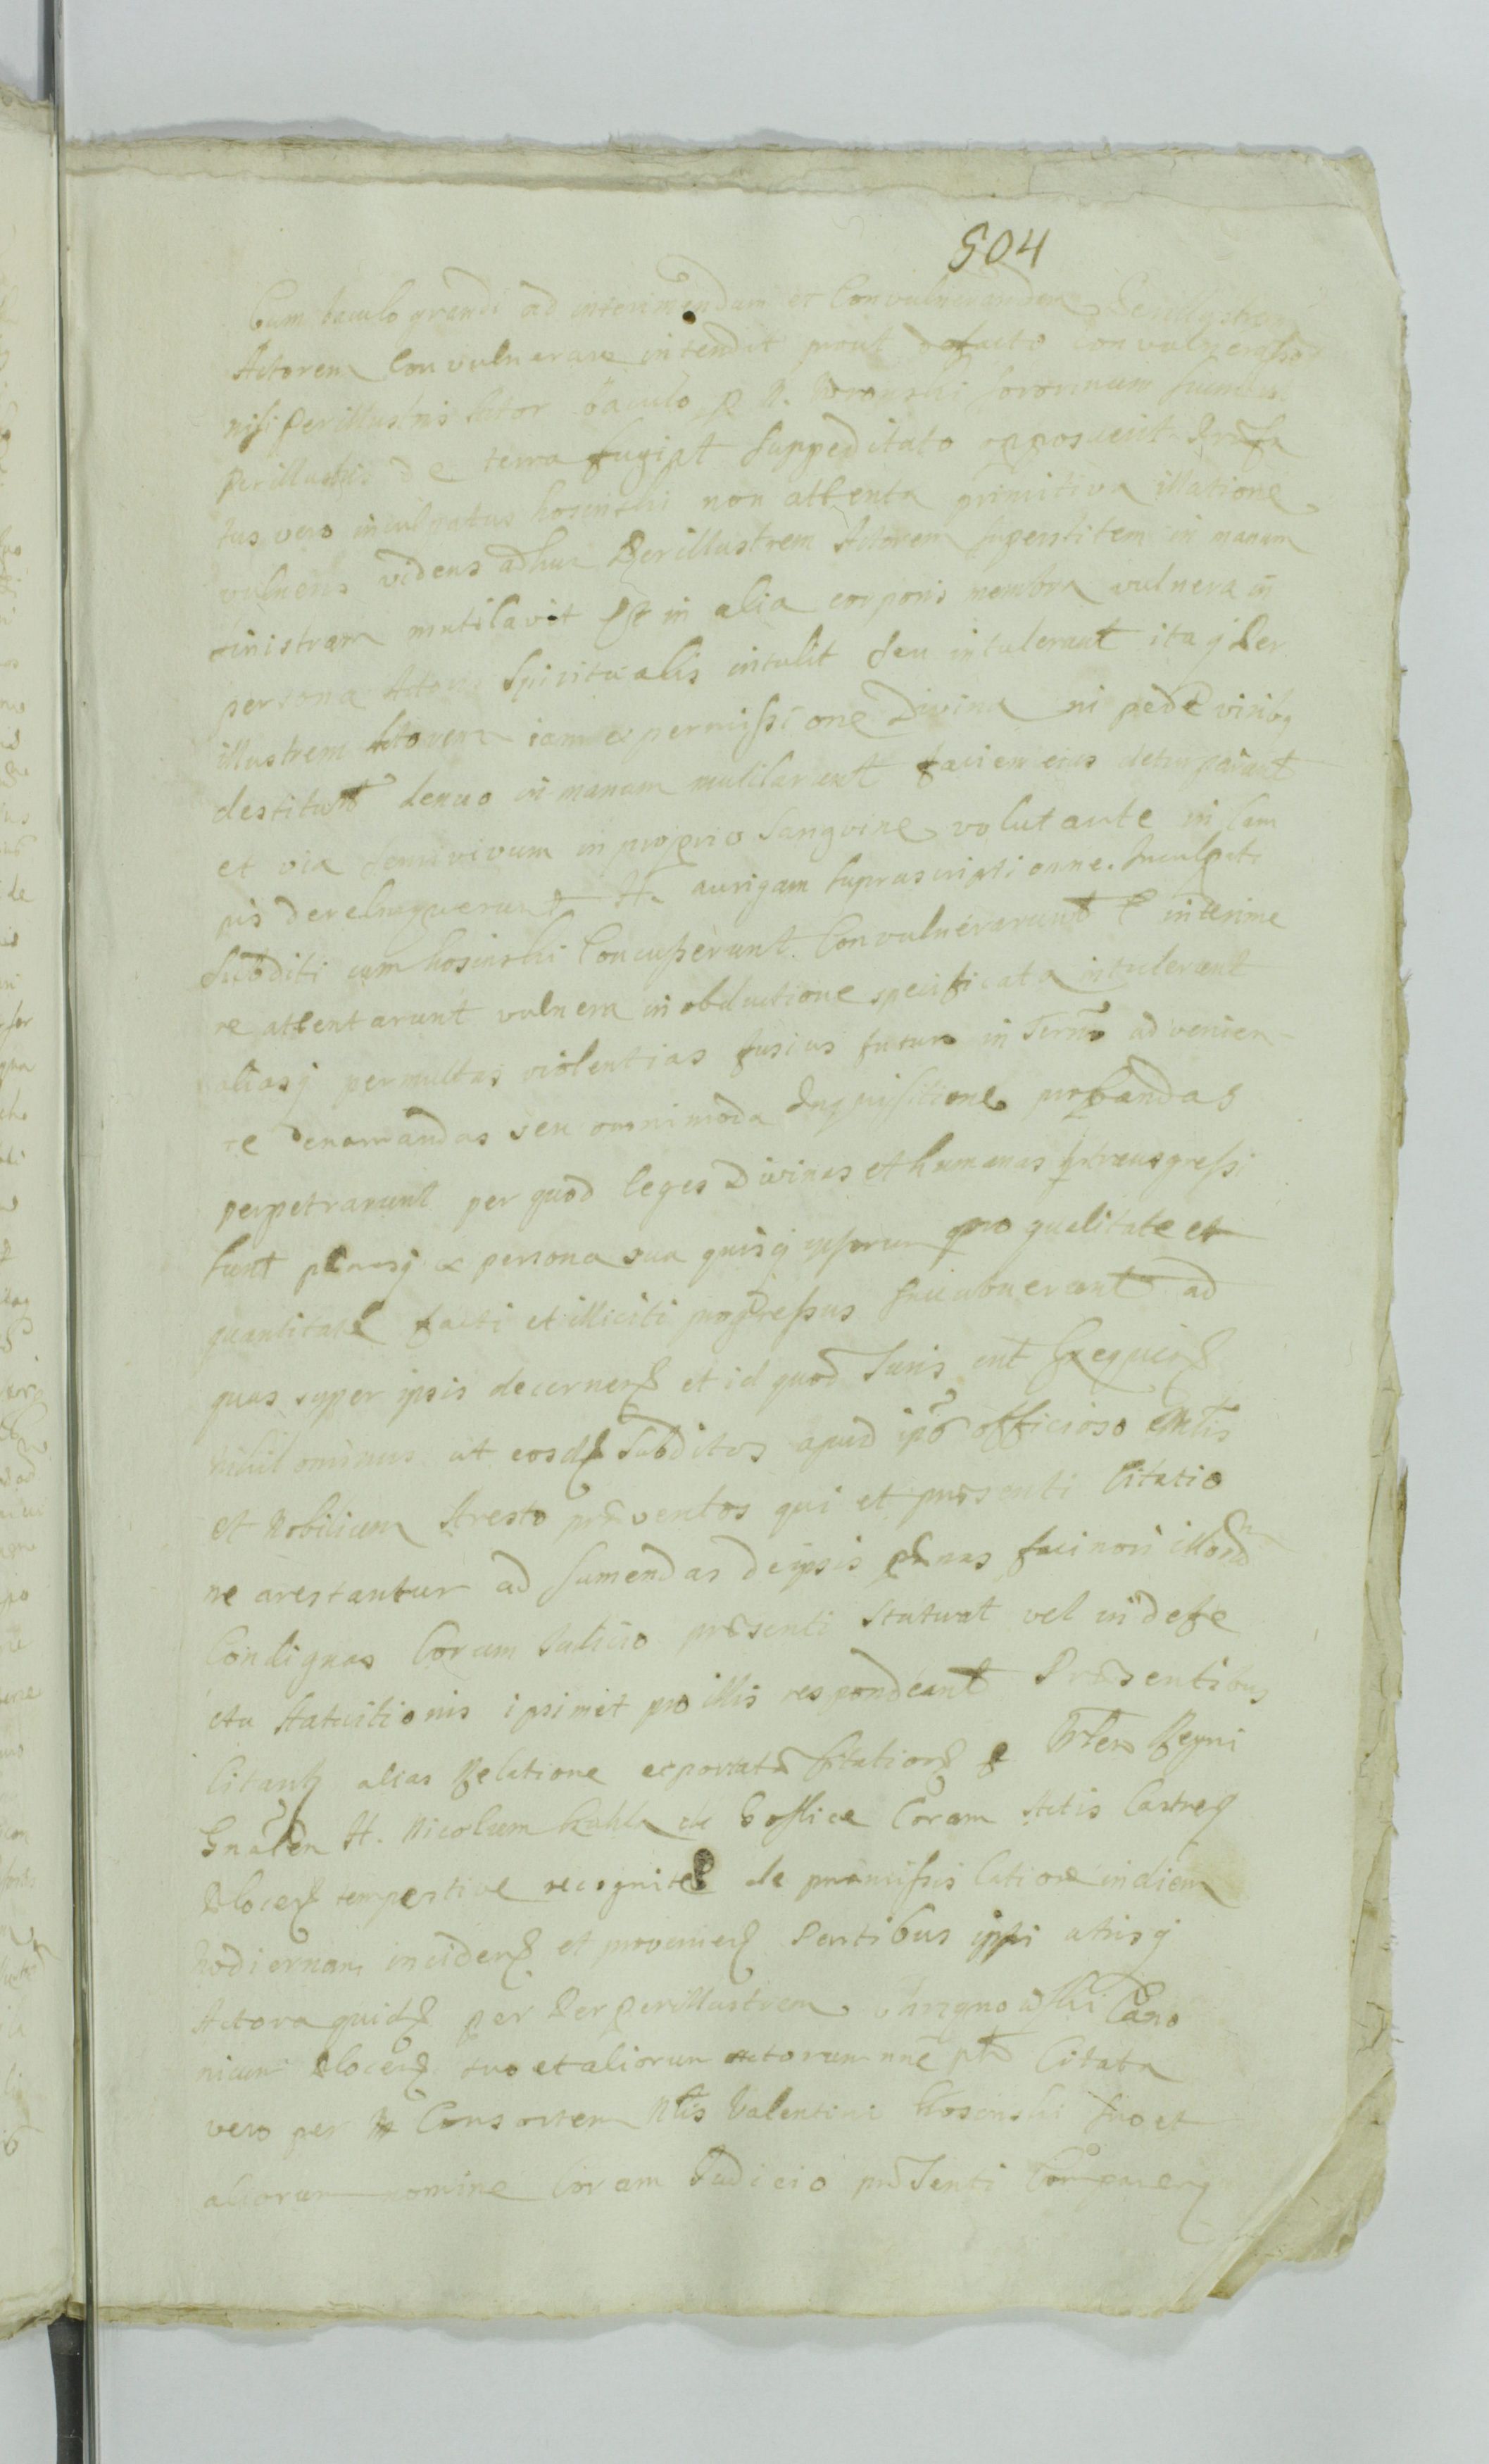 504
Cum baculo grandi ad interimendum et Convulnerandum Perillustrem
Actorem Convulnerare intendit prout de facto convulnerasset
nisi Perillustris Actor baculo p N. Woronski sororinum suum
Perillustris de terra fugiat suppeditato opposuerit Prefa
tus vero inculpatus kosinski non attenta primitiva illatione
vulneris videns adhuc Perillustrem Actorem superstitem in manum
sinistram mutilavit Et in alia corporis membra vulnera in
persona Actoris Spiritualis intulit seu intulerunt itaq Per
illustrem Actorem iam ex permissione Divina ni pede viribq
destitutu denuo in manum mutilarunt faciem eius deturparunt
et via semivivum in proprio Sangvine volutante in Cam
pis derelinquerunt It. aurigam suprascripti omnes Inculpati
Subditi cum kosinski Concusserunt Convulnerarunt & interime
re attentarunt vulnera in obductione specificata intulerunt
aliasq permultas violentias fusius futuro in Termo ad venien-
te denarrandas seu omnimoda Inquisitione probandas
perpetrarunt per quod leges Divinas et humanas transgressi
sunt penasq ex persona sua quisq ipsorum pro qualitate et
quantitate facti et illiciti progressus succubuerunt ad
quas super ipsis decernen et id quod Juris erit Exequien
nihil ominus ut eosd Subditos apud ipso officioso Mntis
et Nobilium Aresto preventos qui et presenti Citatio
ne arestantur ad sumendas de ipsis penas facinori illorum
Condignas Coram Judicio presenti statuat vel in defe
ctu statuitionis ipsimet pro illis respondeant Presentibus
Citant alias Relatione exportate Citation p Mtem Regni
Gnalem H. Nicolaum kahl de Goslice Coram Actis Castren
Plocen tempestive recognite de premissis latione in diem
hodiernam inciden et provenien Partibus ipsi utrisq
Actora quid per Perillustrem Chrzgnowski Cano
nicum Plocen suo et aliorum actorum nne pte Citata
vero per M Consortem Nlis Valentini kosinski suo et
aliorum nomine Coram Judicio presenti Comparen